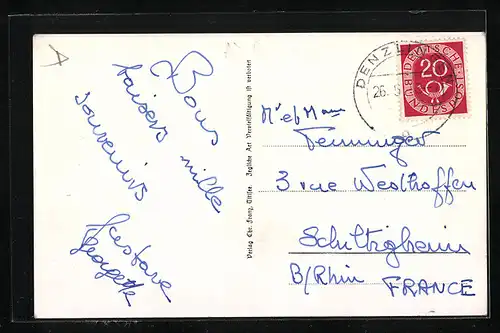 Bons
baisers mille
souvenirs
Gustave
Georgette
Verlag Chr. Franz, Titisee. Jegliche Art Vervielfältigung ist verboten
DENZL
26. 5
DEUTSCHE BUNDESPOST
20
Mr et Mme
Fenninger
3 rue Westhoffen
Schiltigheim
B/Rhin FRANCE